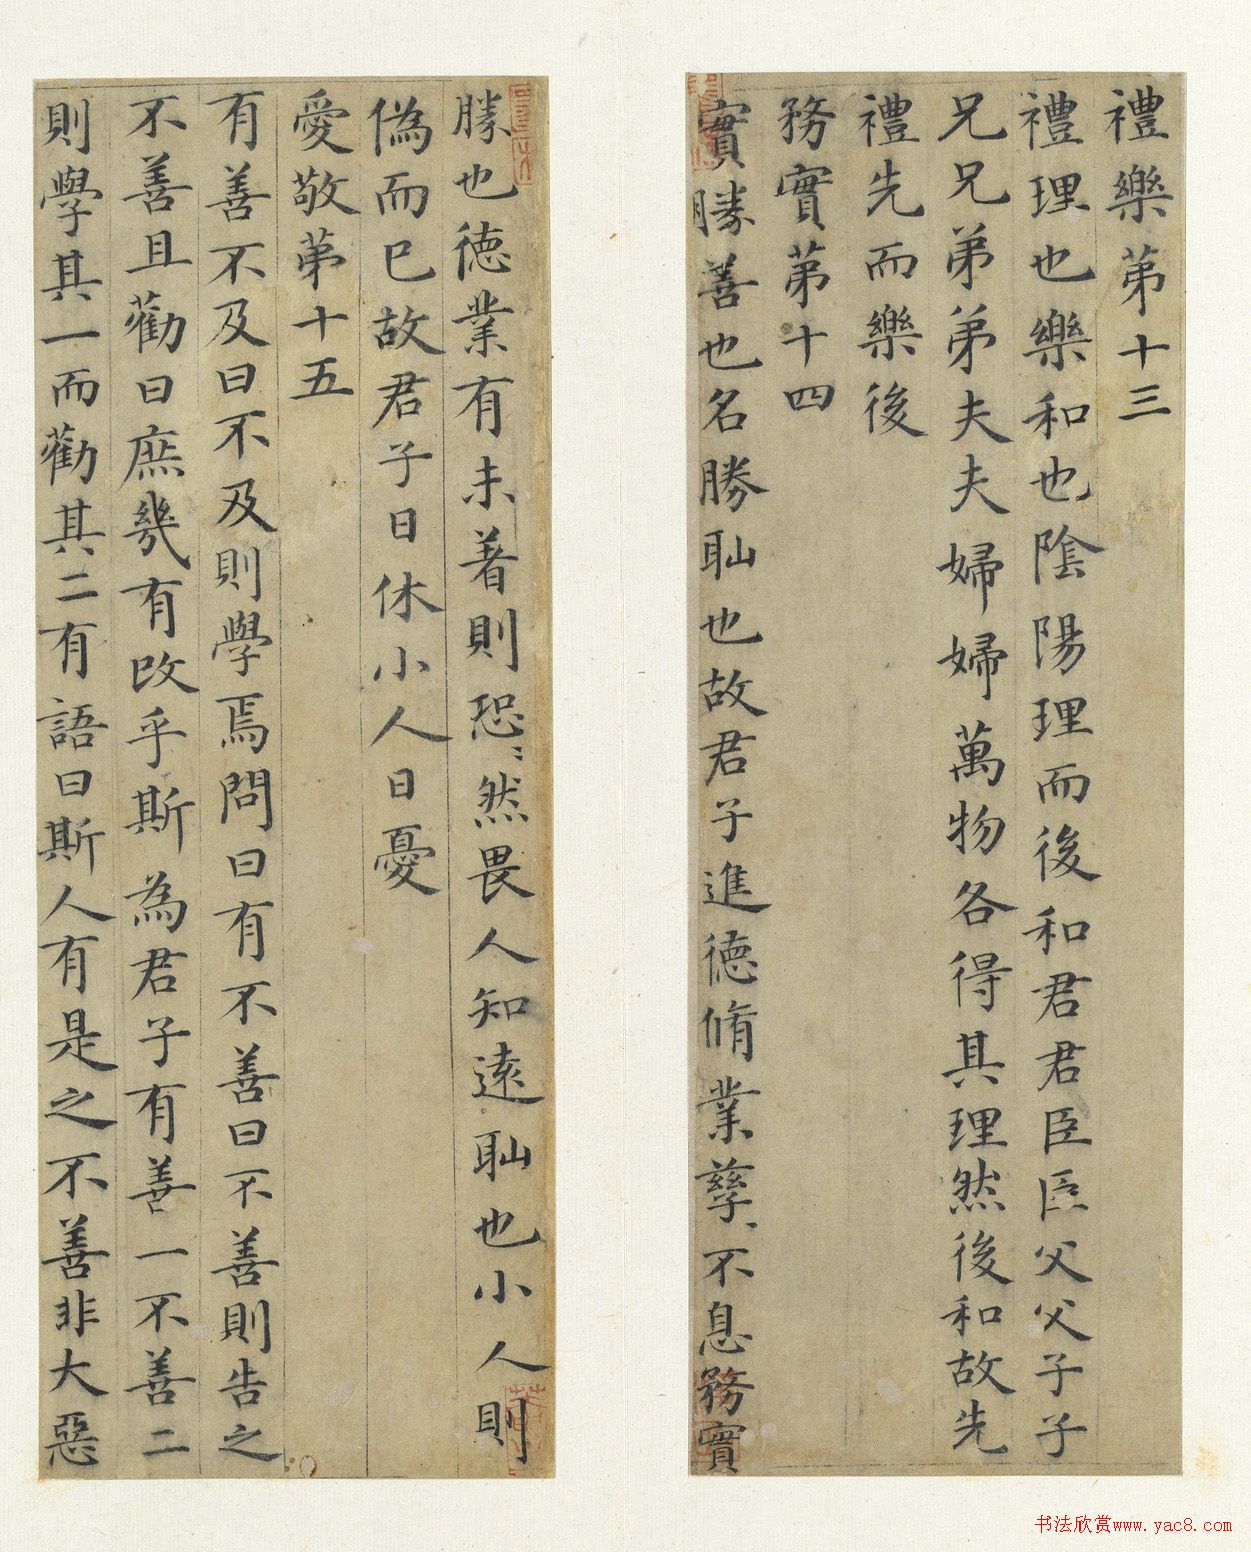 禮樂第十三
禮理也樂和也陰陽理而後和君君臣臣父父子子
兄兄弟弟夫夫婦婦萬物各得其理然後和故先
禮先而樂後
務實第十四
實勝善也名勝恥也故君子進德脩業孳〻不息務實
勝也德業有未著則恐〻然畏人知遠恥也小人則
偽而已故君子日休小人日憂
愛敬第十五
有善不及曰不及則學焉問曰有不善曰不善則告之
不善且勸曰庶幾有改乎斯為君子有善一不善二
則學其一而勸其二有語曰斯人有是之不善非大惡
书法欣赏www.yac8.com